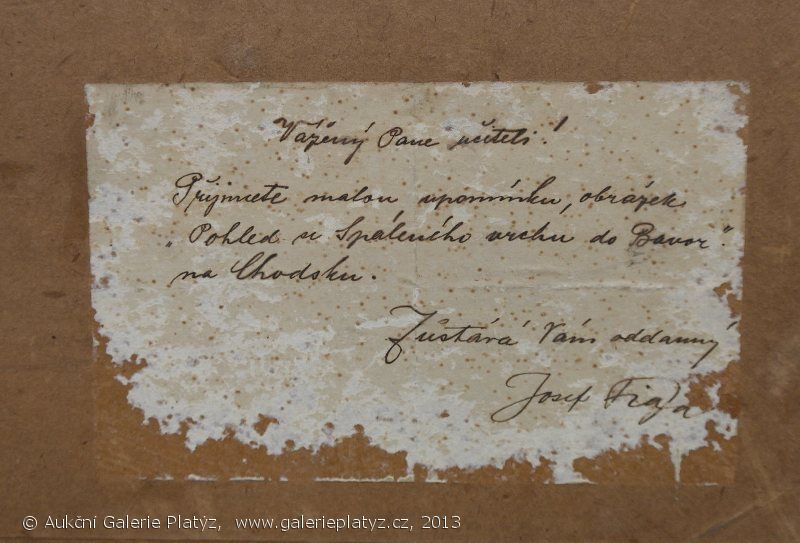 Vážený Pane učiteli!
Přijmete malou upomínku, obrázek
„Pohled u Spáleného vrchu do Bavor"
na Chodsku.
Zůstává Vám oddanný
Josef
© Aukční Galerie Platýz, www.galerieplatyz.cz, 2013